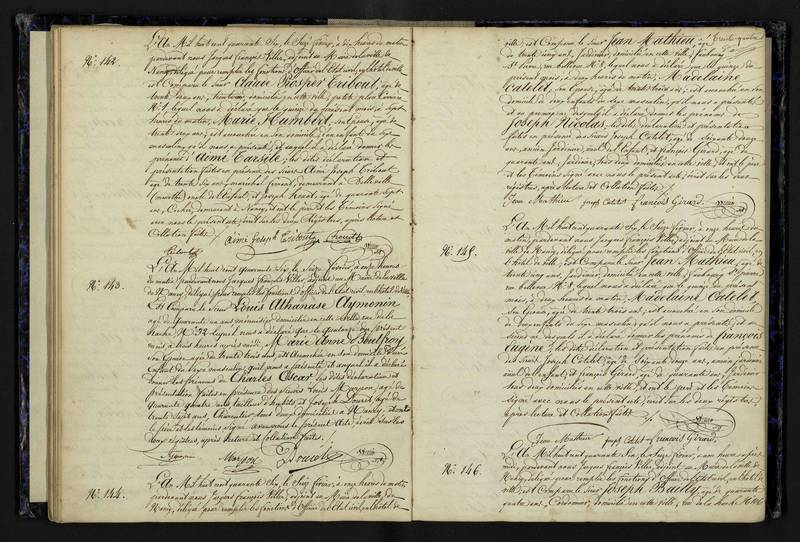 N.º 142.
L'An Mil huit cent quarante Six, le Seize février, à dix heures du matin,
pardevant nous Jacques François Villez, adjoint au Maire de la ville de
Nancy, délégué pour remplir les fonctions d'Officier de l'Etat civil,
est Comparu le Sieur Claude Prosper Tribout, âgé de
trente deux ans, domicilié en cette ville, petite place
N.º 1, lequel nous a déclaré que le quinze du présent mois, à Sept
heures du matin, Marie Humbert, son Epouse, âgée de
trente deux ans, est accouchée en son domicile, d'un enfant du Sexe
masculin, qu'il nous a présenté, et auquel il a déclaré donner les
prénoms d'Aimé Tarsile; les dites déclaration et
présentation faites en présence des Sieurs Aimé Joseph Tribout
âgé de trente Six ans, maréchal ferrant, demeurant à Belleville
(meurthe) oncle de l'Enfant, et Joseph
ans, Cocher, demeurant à Nancy, et ont le père et les témoins Signé
avec nous le présent acte, écrit sur les deux Registres, après lecture et
Collation faites.
Aimé Joseph Tribout
Tribout
N.º 143.
L'An Mil huit cent quarante Six, le Seize février, à onze heures
du matin, pardevant nous Jacques François Villez, adjoint au Maire de la ville
de Nancy, délégué pour remplir les fonctions d'officier de l'Etat civil,
Est Comparu le Sieur Louis Athanase Aymonin
âgé de Quarante un ans, domicilié en cette ville, rue de la
hache N.º 32, lequel nous a déclaré que le quatorze du présent
mois à trois heures après midi, Marie Anne Bouffroy
Son Epouse, âgée de trente trois ans, est accouchée en son domicile d'un
Enfant du Sexe masculin, qu'il nous a présenté, et auquel il a déclaré
donner les prénoms de Charles Oscar; les dites déclaration et
présentation faites en présence des Sieurs Louis Marson, âgé de
quarante quatre ans, tailleur d'habits, et Joseph
trente Sept ans, tous deux domiciliés à Nancy, et ont
le père et les témoins Signé avec nous le présent Acte, écrit sur les
deux registres, après lecture et collation faites.
Aymonin Marson
N.º 144.
L'An Mil huit cent quarante Six, le Seize février, à onze heures du matin,
pardevant nous Jacques François Villez, adjoint au Maire de la ville, de
Nancy, délégué pour remplir les fonctions d'Officier de l'Etat civil,
ville, est Comparu le Sieur Jean Mathieu, âgé
de trente cinq ans, Jardinier, domicilié en cette ville, faubourg
St. Pierre, N.º 1, lequel nous a déclaré, que le quinze du
présent mois, à deux heures du matin, Madelaine
Catelot, Son Epouse, âgée de trente trois ans, est accouchée en Son
domicile de deux enfants du Sexe masculin, qu'il nous a présentés,
et au premier desquels il a déclaré, donner les prénoms de
Joseph Nicolas; les dites déclaration et présentation
faites en présence des Sieurs Joseph Catelot, âgé de Soixante douze
ans, ancien Jardinier, aieul de l'Enfant, et François Girard, âgé de
quarante ans, Jardinier, tous deux domiciliés en cette ville, et ont le père
et les témoins Signé avec nous le présent acte, écrit sur les deux
registres, après lecture et Collation faites.
Jean Mathieu joseph Catelot François Girard.
N.º 145.
L'An Mil huit cent quarante Six, le Seize février, à onze heures du
matin, pardevant nous Jacques François Villez, adjoint au Maire de la
ville de Nancy, délégué pour remplir les fonctions d'Officier de l'Etat civil,
est Comparu le Sieur Jean Mathieu, âgé de
trente cinq ans, Jardinier, domicilié en cette ville, faubourg St. Pierre
N.º 1, lequel nous a déclaré que le quinze du présent
mois, à deux heures du matin, Madelaine Catelot,
Son Epouse, âgée de trente trois ans, est accouchée en Son domicile
de deux enfants du Sexe masculin, qu'il nous a présentés, et au
desquels il a déclaré donner les prénoms de françois
Eugène; les dites déclaration et présentation faites en présence
des Sieurs Joseph Catelot, âgé de Soixante douze ans, ancien Jardinier
aieul de l'enfant, et François Girard, âgé de quarante ans, Jardinier,
tous deux domiciliés en cette ville, et ont le père et les témoins
Signé avec nous le présent acte, écrit sur les deux registres,
après lecture et Collation faites.
Jean Mathieu joseph Catelot françois Girard.
N.º 146.
L'An Mil huit cent quarante Six, le Seize février, à une heure après
midi, pardevant nous Jacques François Villez, adjoint au Maire de la ville de
Nancy, délégué pour remplir les fonctions d'Officier de l'Etat civil,
ville, est Comparu le Sieur Joseph Bailly, âgé de quarante
quatre ans, Cordonnier, domicilié en cette ville, rue de la hache N.º